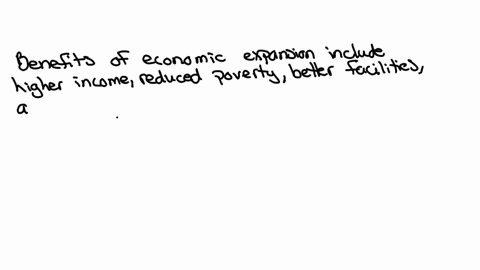 Benefits of economic expansion include
higher income, reduced poverty, better facilities,
a